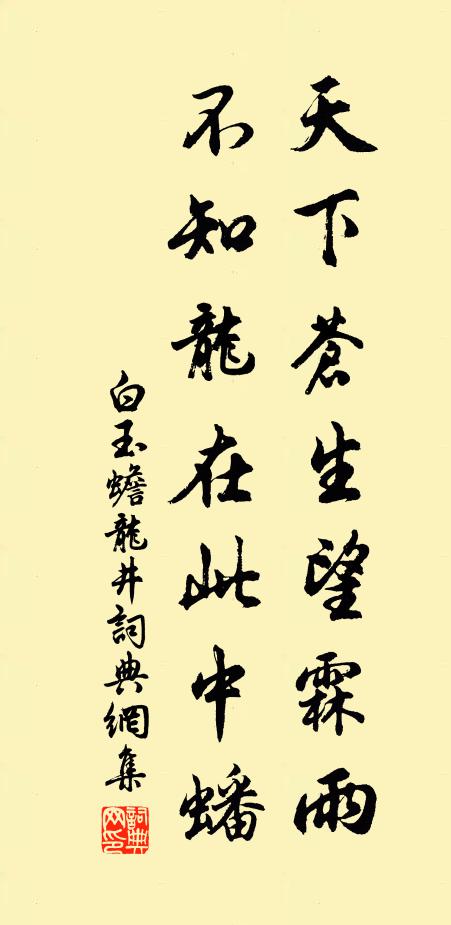 天下蒼生望霖雨
不知龍在此中蟠
白玉蟾龍井詞典網集
詞典網印